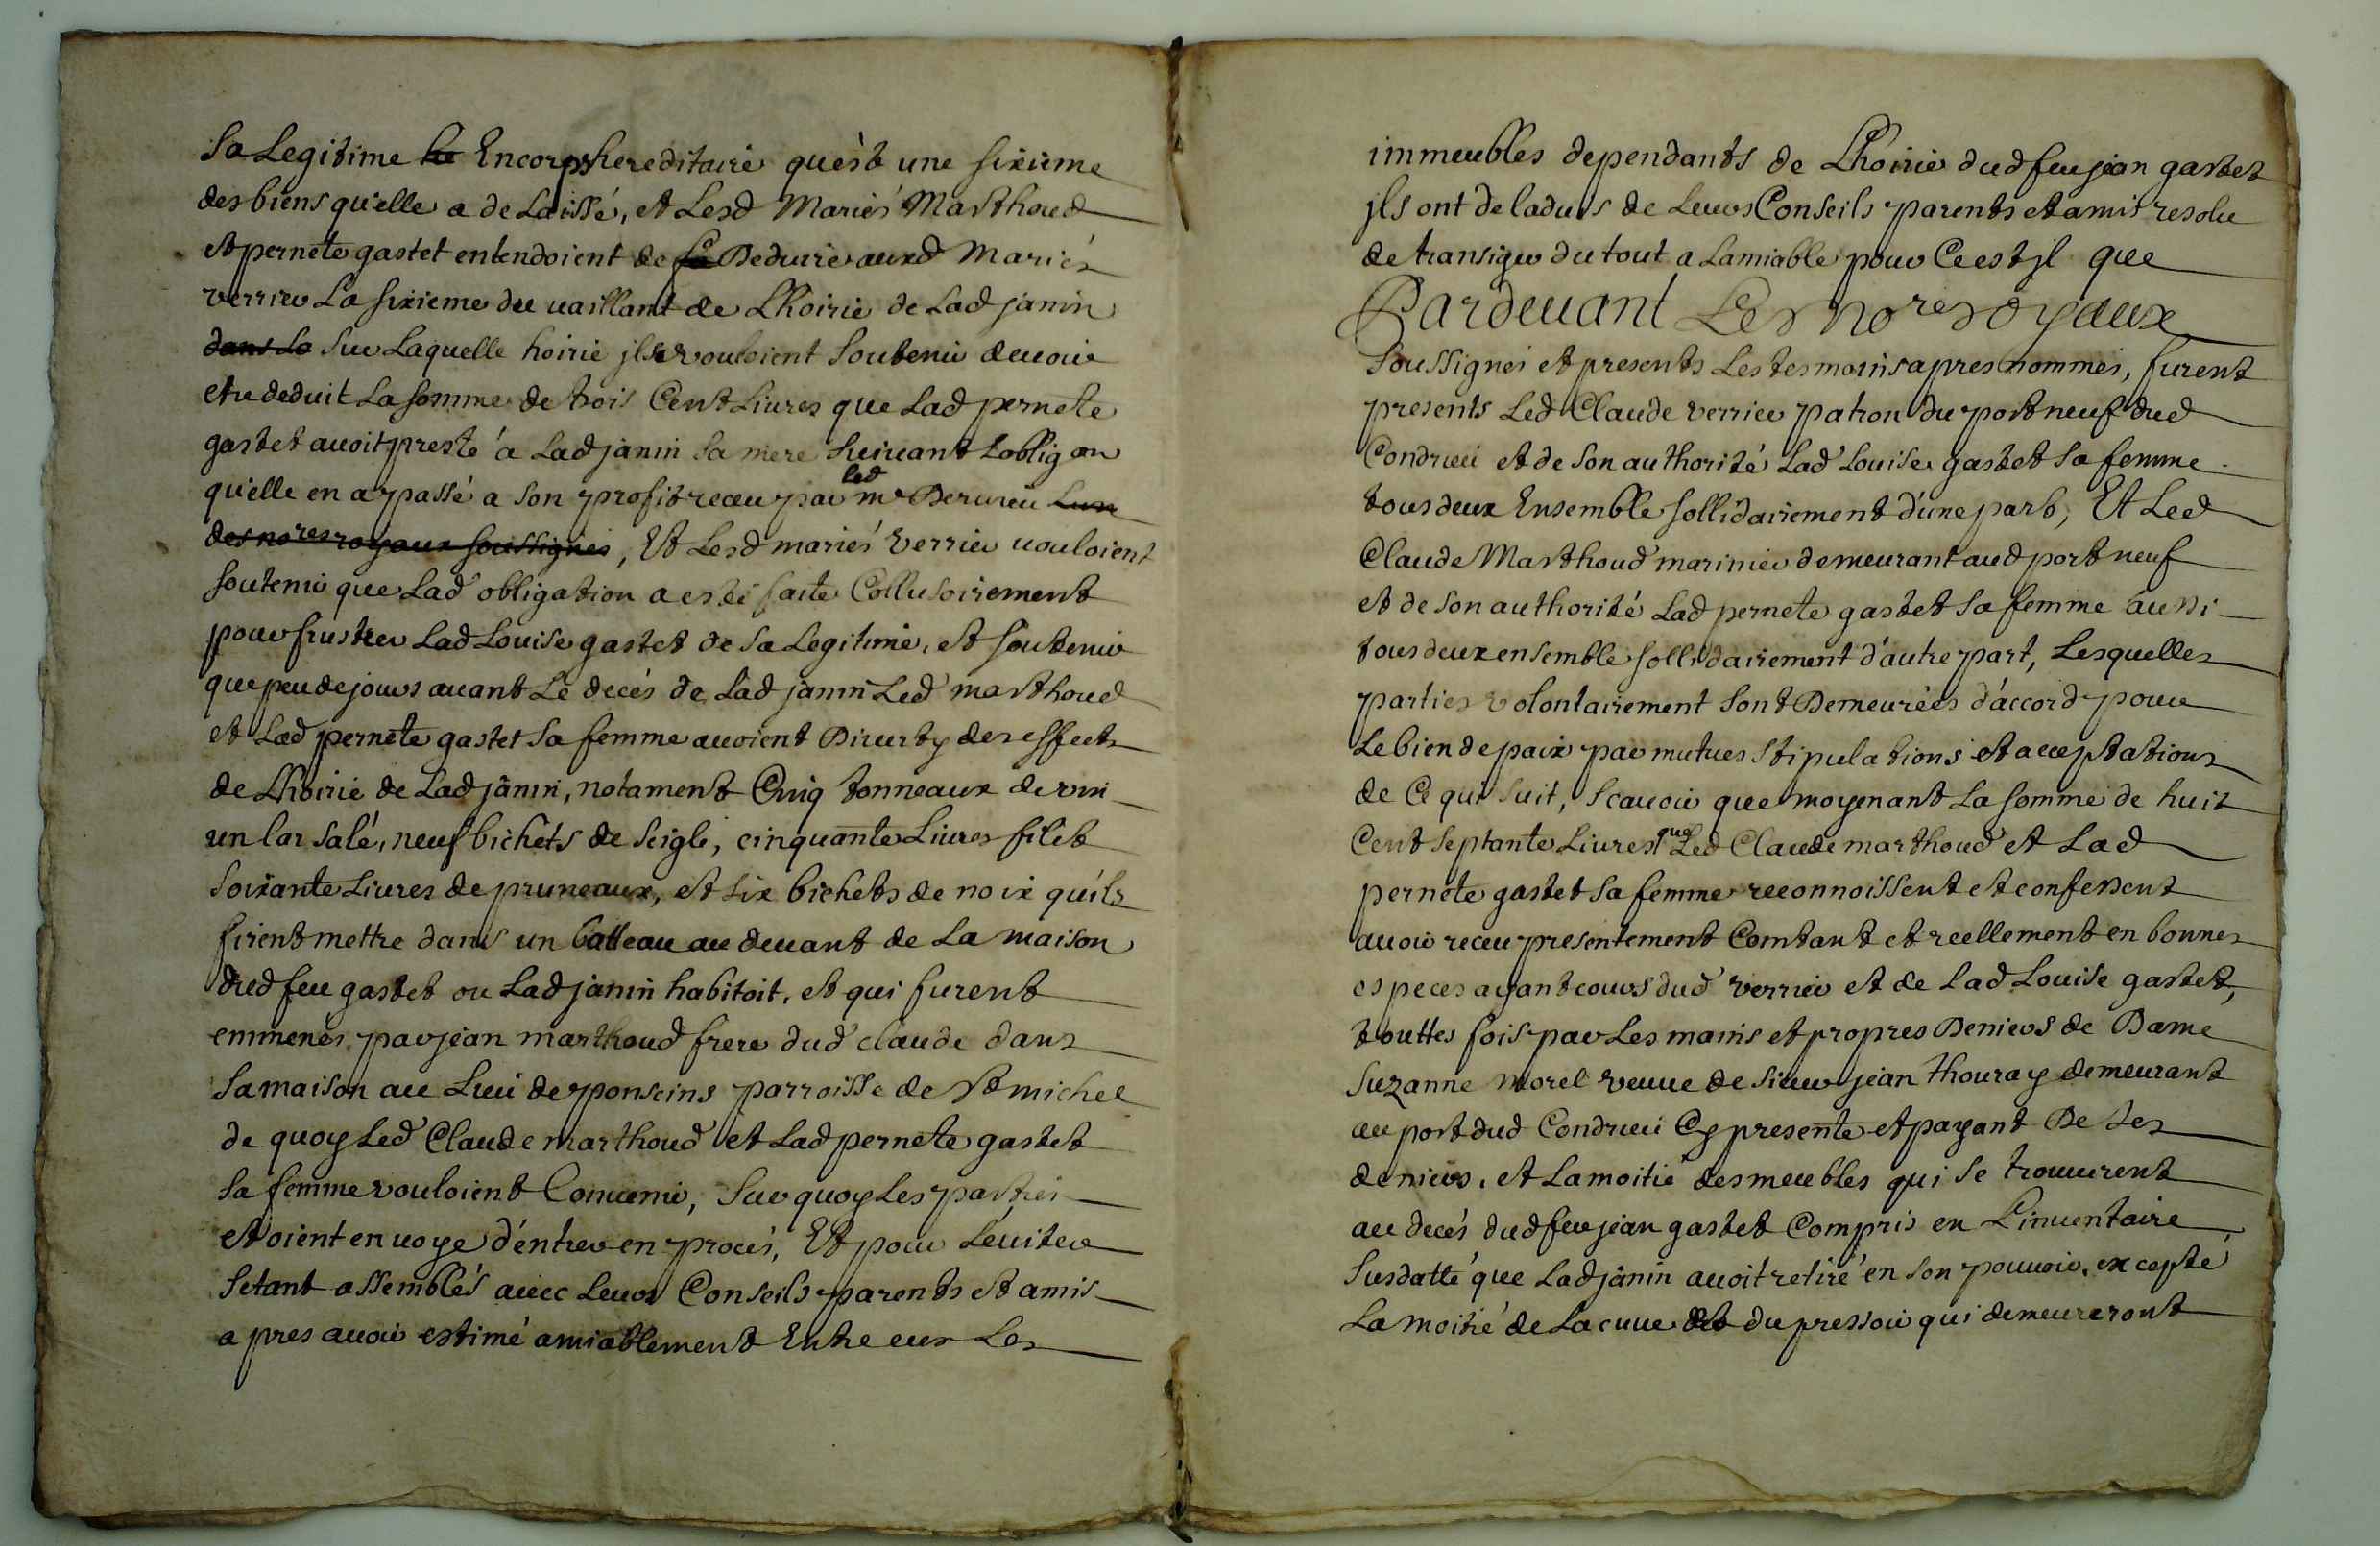 Sa Legitime he Encorps hereditaire quest une sixieme
des biens qu'elle a delaissé, et Lesd Mariés Marthoud
et pernete gastet entendoient de sa Deduire auxd Mariés
verrier La sixieme du vaillant de Lhoirie de Lad janin
dans La Sur Laquelle hoirie jls vouloient Soutenir devoir
etre deduit La somme de trois Cent Livres que Lad pernete
gastet avoit presté a Lad janin sa mere Suivant Lobligaon
qu'elle en a passé a son profit receu par led me Derurieu Lun
des nores royaux soussignés, Et Lesd mariés Verrier vouloient
soutenir que Lad obligation a esté faite Collusoirement
pour frustrer Lad Louise gastet de sa Legitime, et soutenir
que peu de jours avant Le decés de Lad janin Led marthoud
et Lad pernete gastet sa femme avoient Diverty des effects
de Lhoirie de Lad janin, notament Cinq tonneaux de vin
un lar salé, neuf bichets de seigle, cinquante Livres filet
soixante Livres de pruneaux, et six bichets de noix quils
firent mettre dans un batteau au devant de La maison
dud feu gastet ou Lad janin habitoit, et qui furent
emmenés par jean marthoud frere dud claude dans
sa maison au Lieu de ponseins parroisse de St michel
de quoy Led Claude marthoud et Lad pernete gastet
sa femme vouloient Convenir, Sur quoy Les parties
etoient en voye d'entrer en procés, Et pour Léviter
setant assemblés avec Leurs Conseils parents et amis
apres avoir estimé amiablement Entre eux Les
immeubles dependants de Lhoirie dud feu jean gastet
jls ont de ladvis de Leurs Conseils parents et amis resolu
de transiger du tout a Lamiable pour Ce est jl que
Pardevant Les nores royaux
Soussignés et presents Les tesmoins apres nommés, furent
presents Led Claude verrier patron du port neuf dud
Condrieu et de son authorité Lad Louise gastet sa femme
tous deux Ensemble sollidairement d'une part, Et Led
Claude Marthoud marinier demeurant aud port neuf
et de son authorité Lad pernete gastet sa femme aussi
tous deux ensemble sollidairement d'autre part, Lesquelles
parties volontairement sont Demeurées d'accord pour
Le bien de paix par mutues stipulations et acceptations
de Ce qui suit, Scavoir que moyenant La somme de huit
Cent septante Livres que Led Claude marthoud et Lad
pernete gastet sa femme reconnoissent et confessent
avoir receu presentement Comtant et reellement en bonnes
especes ayant cours dud verrier et de Lad Louise gastet,
touttes fois par Les mains et propres Deniers de Dame
Suzanne Morel veuve de sieur jean thouray demeurant
au port dud Condrieu Cy presente et payant De ses
deniers, et La moitié des meubles qui se trouverent
au decés dud feu jean gastet Compris en L'inventaire
Susdatté que Lad janin avoit retiré en son pouvoir, excepté
La moitié de La cuve et du pressoir qui demeureront